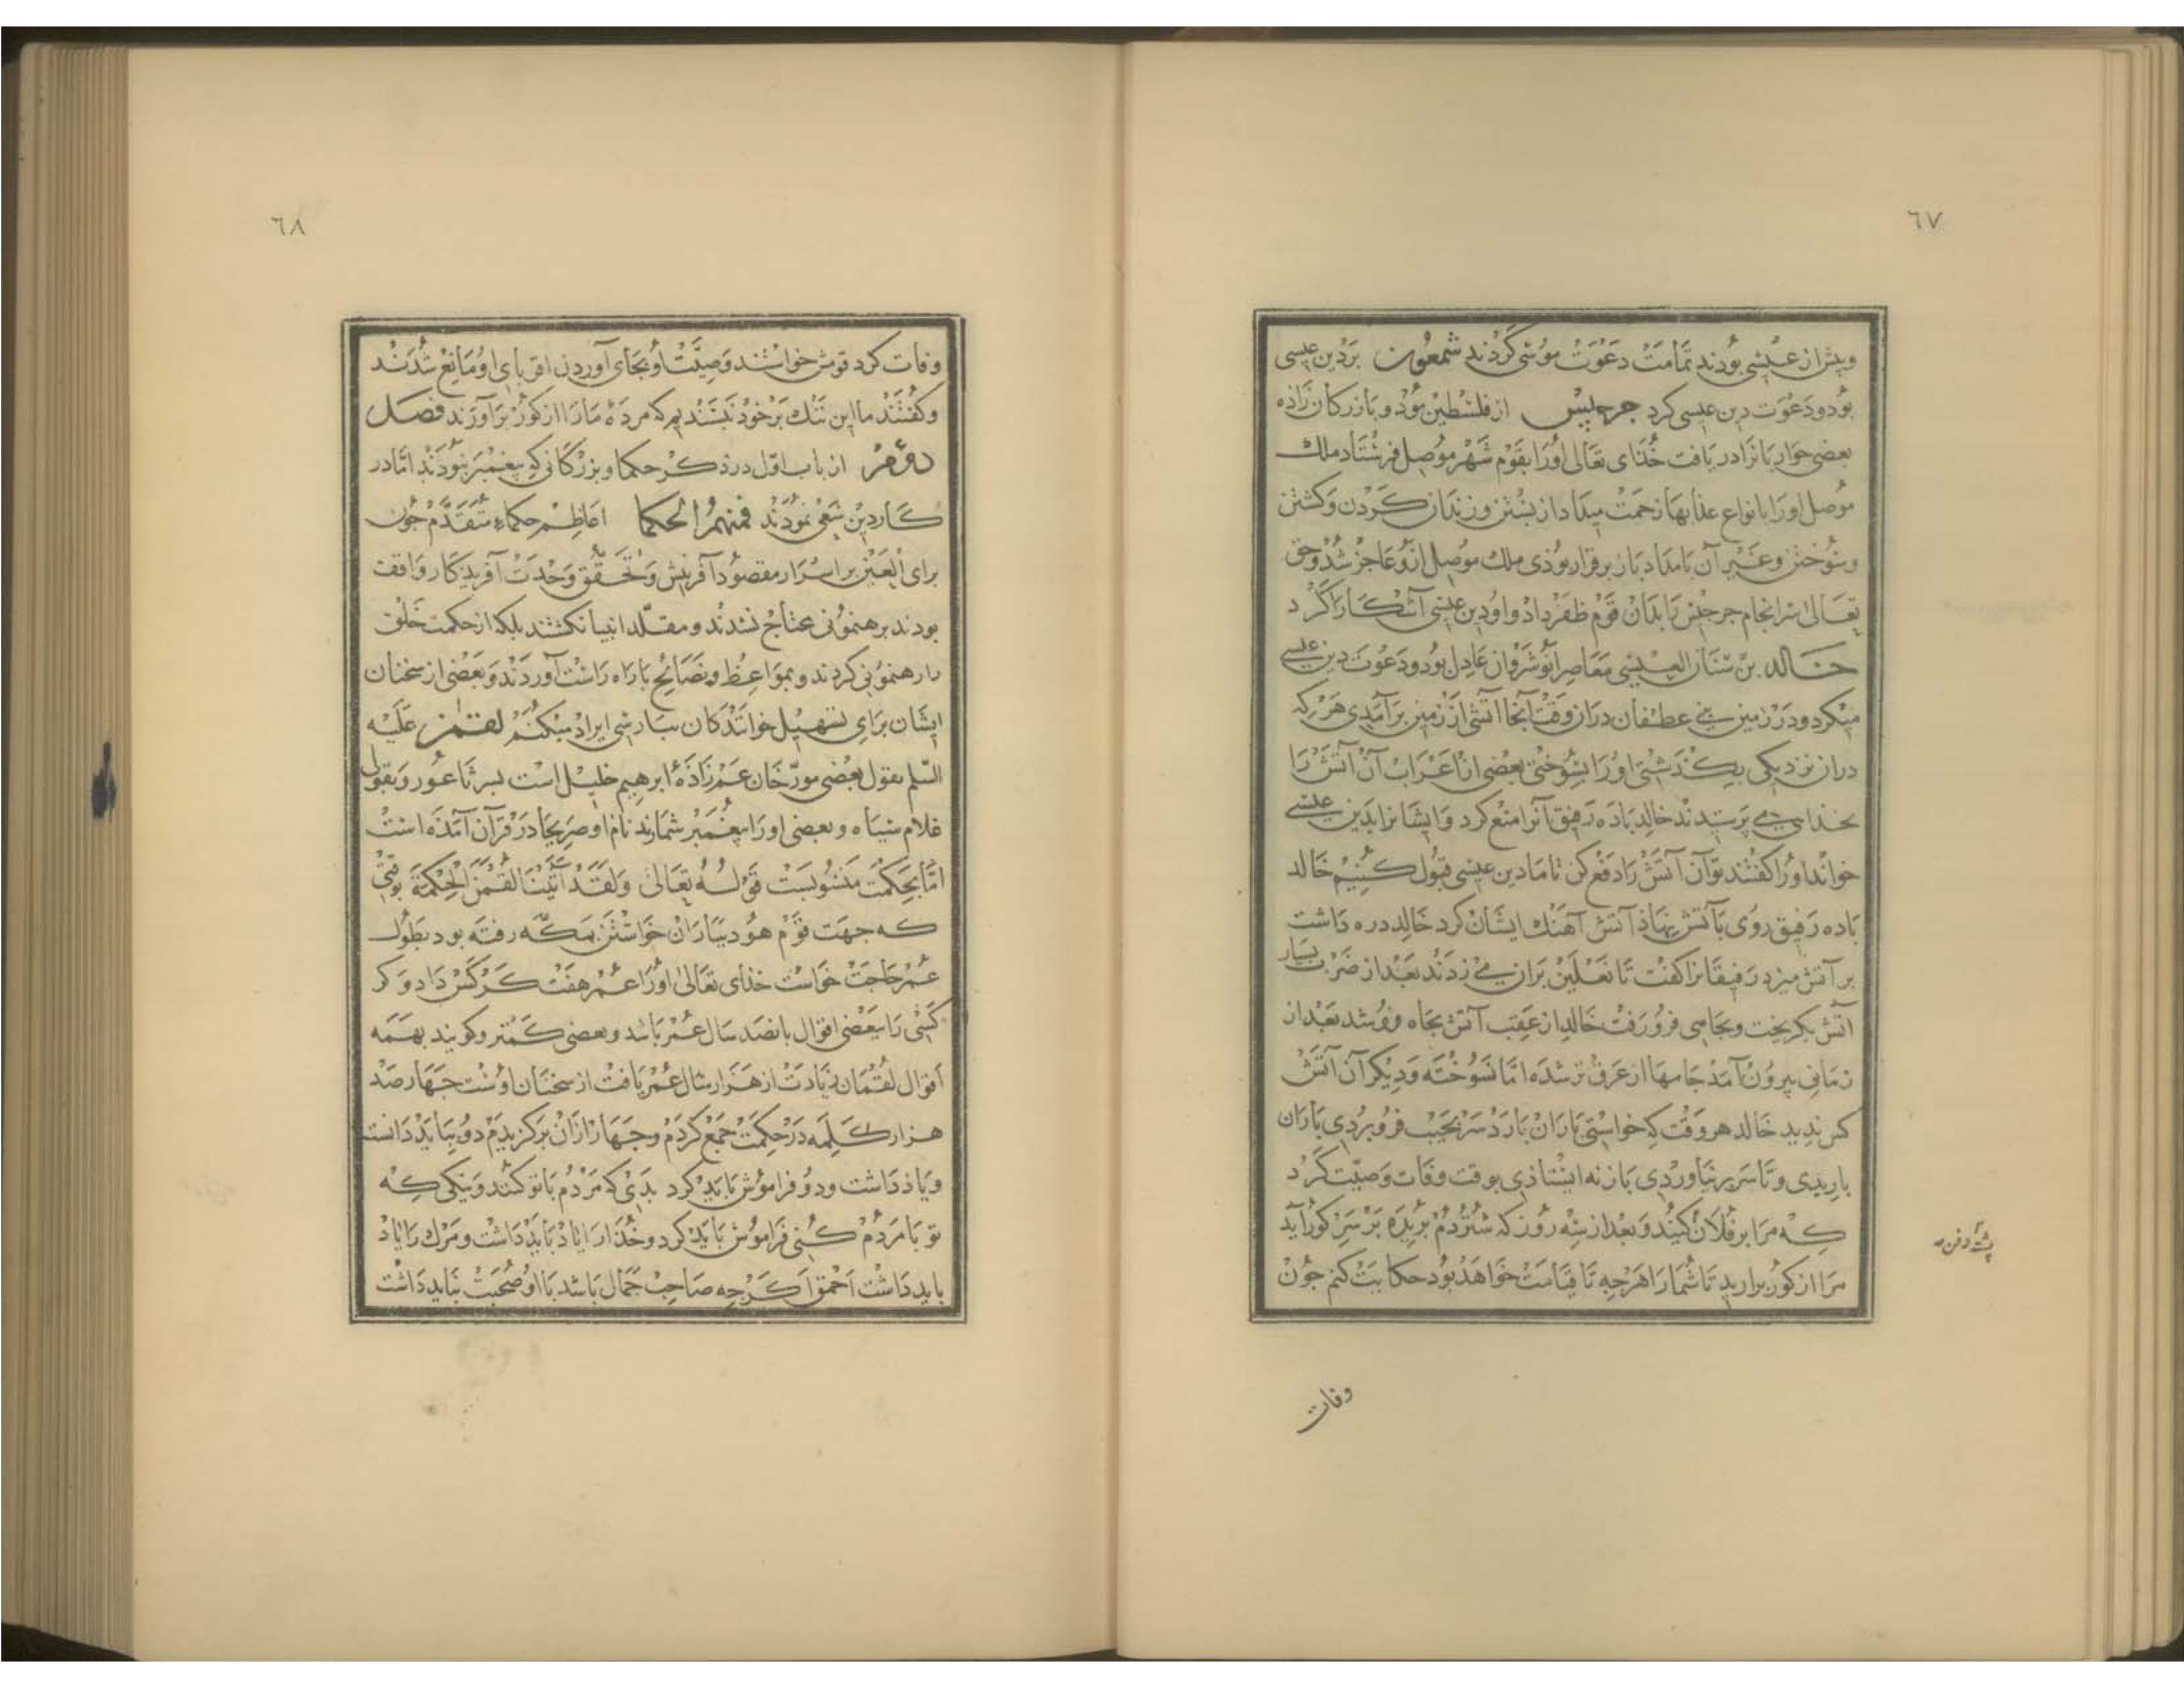 ٦٧
وپیش از عیسی بودند تمامت دعوت موسی کردند شمعون بر دین عیسی
بود و دعوت دین عیسی کرد جرجیس از فلسطین بود و بازرکان زاده
بعضی حواریانرا دریافت خذای تعالی اورا بقوم شهر موصل فرستاد ملک
موصل اورا بانواع عذابها زحمت میداد از بستن و زندان کردن و کشتن
وسوختن وغیر آن بامداد باز برقرار بوذی ملک موصل ازو عاجز شد و حق
تعالی سرانجام جرجیس را بدان قوم ظفر داد و او دین عیسی آشکارا کرد
خالد بن سنان العبسی معاصر انوشروان عادل بود و دعوت دین عیسی
میکرد و در زمین بنی عطفان دران وقت آنجا آتشی از زمین برآمدی هر که
دران نزدیکی بکذشتی اورا بسوختی بعضی از اعراب آن آتش را
بخدایی می پرستیدند خالد باده رفیق آنرا منع کرد وایشانرا بدین عیسی
خواند اورا کفتند تو آن آتش را دفع کن تا ما دین عیسی قبول کنیم خالد
باده رفیق روی بآتش نهاذ آتش آهنک ایشان کرد خالد دره داشت
بر آتش میزد رفیقانرا کفت تا نعلین بران می زدند بعد از ضرب بسیار
آتش بکریخت وبچاهی فرو رفت خالد از عقب آتش بجاه فرو شد بعد از
زمانی بیرون آمد جامها از عرق تر شده اما نسوخته ودیکر آن آتش
کس ندید خالد هر وقت که خواستی باران بارد سر بجیب فرو بردی باران
باریدی وتا سر برنیاوردی باز نه ایستاذی بوقت وفات وصیت کرد
که مرا بر فلان کنید و بعد از سه روز که شتر دم بریده بر سر کور آید
پشته دفن
مرا از کور برارید تا شمارا هرجه تا قیامت خواهذ بود حکایت کنم جون
وفات
٦٨
وفات کرد قومش خواستند وصیت او بجای آوردن اقربای او مانع شدند
وکفتند ما این ننک بر خود نپسندیم که مردهٔ مارا از کور برآورند فصل
دوم از باب اول در ذکر حکما و بزرکانی که پیغمبر نبودند اما در
کار دین سعی نمودند فمنهم الحکما اعاظم حکماء متقدم جون
برای العین بر اسرار مقصود آفرینش وتحقق وحدت آفریدکار واقف
بودند برهنمونی محتاج نشدند ومقلد انبیا نکشتند بلکه از حکمت خلق
را رهنمونی کردند وبمواعظ ونصائح با راه راست آوردند وبعضی از سخنان
ایشان برای تسهیل خوانندکان بپارسی ایراد میکنم لقمن علیه
السلم بقول بعضی مورخان عم زاذهٔ ابرهیم خلیل است بسر ثاعور وبقولی
غلام سیاه وبعضی اورا پیغمبر شمارند نام او صریحا در قرآن آمذه است
اما بحکمت منسوبست قوله تعالی ولقد آتینا لقمن الحکمة بوقتی
که جهت قوم هود بباران خواستن بمکه رفته بود بطول
عمر حاجت خواست خذای تعالی اورا عمر هفت کرکس داد و کر
کسی را ببعضی اقوال بانصد سال عمر باشد وبعضی کمتر وکویند بهمه
اقوال لقمان زیادت از هزار سال عمر یافت از سخنان اوست جهارصد
هزار کلمه در حکمت جمع کردم وجهار ازان برکزیدم دو بباید دانست
ویاذ داشت ودو فراموش باید کرد بدی که مردم با تو کنند ونیکی که
تو با مردم کنی فراموش باید کرد وخذارا یاد باید داشت ومرک را یاد
باید داشت احمق اکرجه صاحب جمال باشد با او صحبت نباید داشت